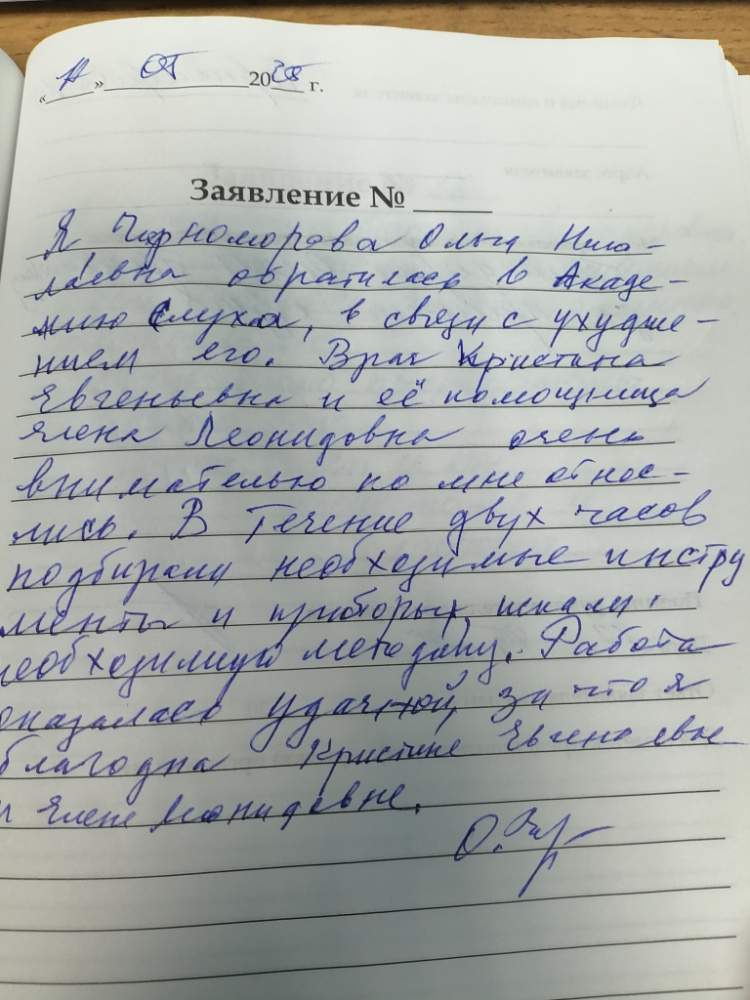 « » 20 г.
Заявление №
Я Черноморова Ольга Нико-
лаевна обратилась в Акаде-
мию Слуха, в связи с ухудше-
нием его. Врач Кристина
Евгеньевна и её помощница
Елена Леонидовна очень
внимательно ко мне отнес-
лись. В течение двух часов
подбирали необходимые инстру
менты и приборы, искали
необходимую методику. Работа
оказалась удачной, за что я
благодна Кристине Евгеньевне
и Елене Леонидовне.